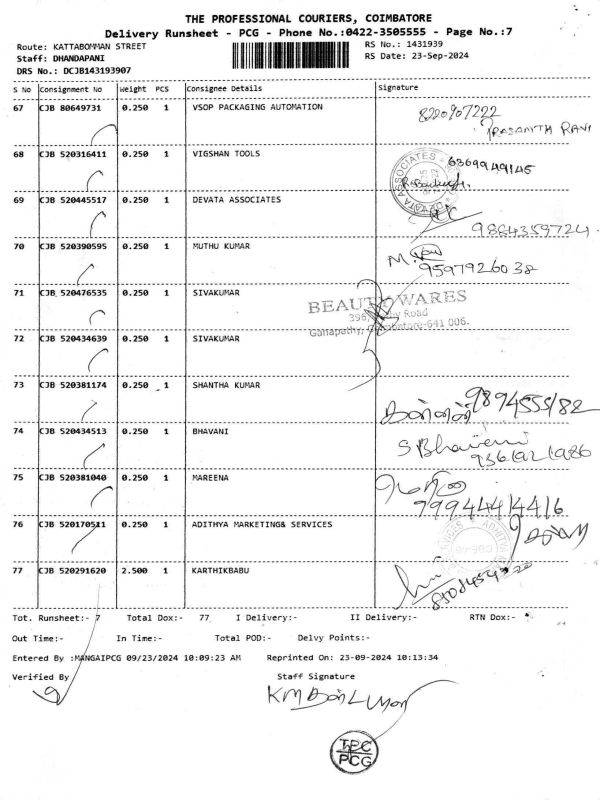 THE PROFESSIONAL COURIERS, COIMBATORE
Delivery Runsheet - PCG - Phone No.:0422-3505555 - Page No.:7
Route: KATTABOMMAN STREET
RS No.: 1431939
Staff: DHANDAPANI
RS Date: 23-Sep-2024
DRS No.: DCJB143193907
S No Consignment No Weight PCS Consignee Details Signature
67 CJB 80649731 0.250 1 VSOP PACKAGING AUTOMATION 8220907222
PRASANTH RAVI
68 CJB 520316411 0.250 1 VIGSHAN TOOLS 6369949145
69 CJB 520445517 0.250 1 DEVATA ASSOCIATES
9864359724
70 CJB 520390595 0.250 1 MUTHU KUMAR
9597926038
71 CJB 520476535 0.250 1 SIVAKUMAR
BEAUTY WARES
Ganapathy, Coimbatore-641 006.
72 CJB 520434639 0.250 1 SIVAKUMAR
73 CJB 520381174 0.250 1 SHANTHA KUMAR
9894555182
74 CJB 520434513 0.250 1 BHAVANI S Bhavani
75 CJB 520381040 0.250 1 MAREENA
9994441446
76 CJB 520170511 0.250 1 ADITHYA MARKETING& SERVICES
77 CJB 520291620 2.500 1 KARTHIKBABU
Tot. Runsheet:- 7 Total Dox:- 77 I Delivery:- II Delivery:- RTN Dox:-
Out Time:- In Time:- Total POD:- Delvy Points:-
Entered By :MANGAIPCG 09/23/2024 10:09:23 AM Reprinted On: 23-09-2024 10:13:34
Verified By Staff Signature
TPC
PCG